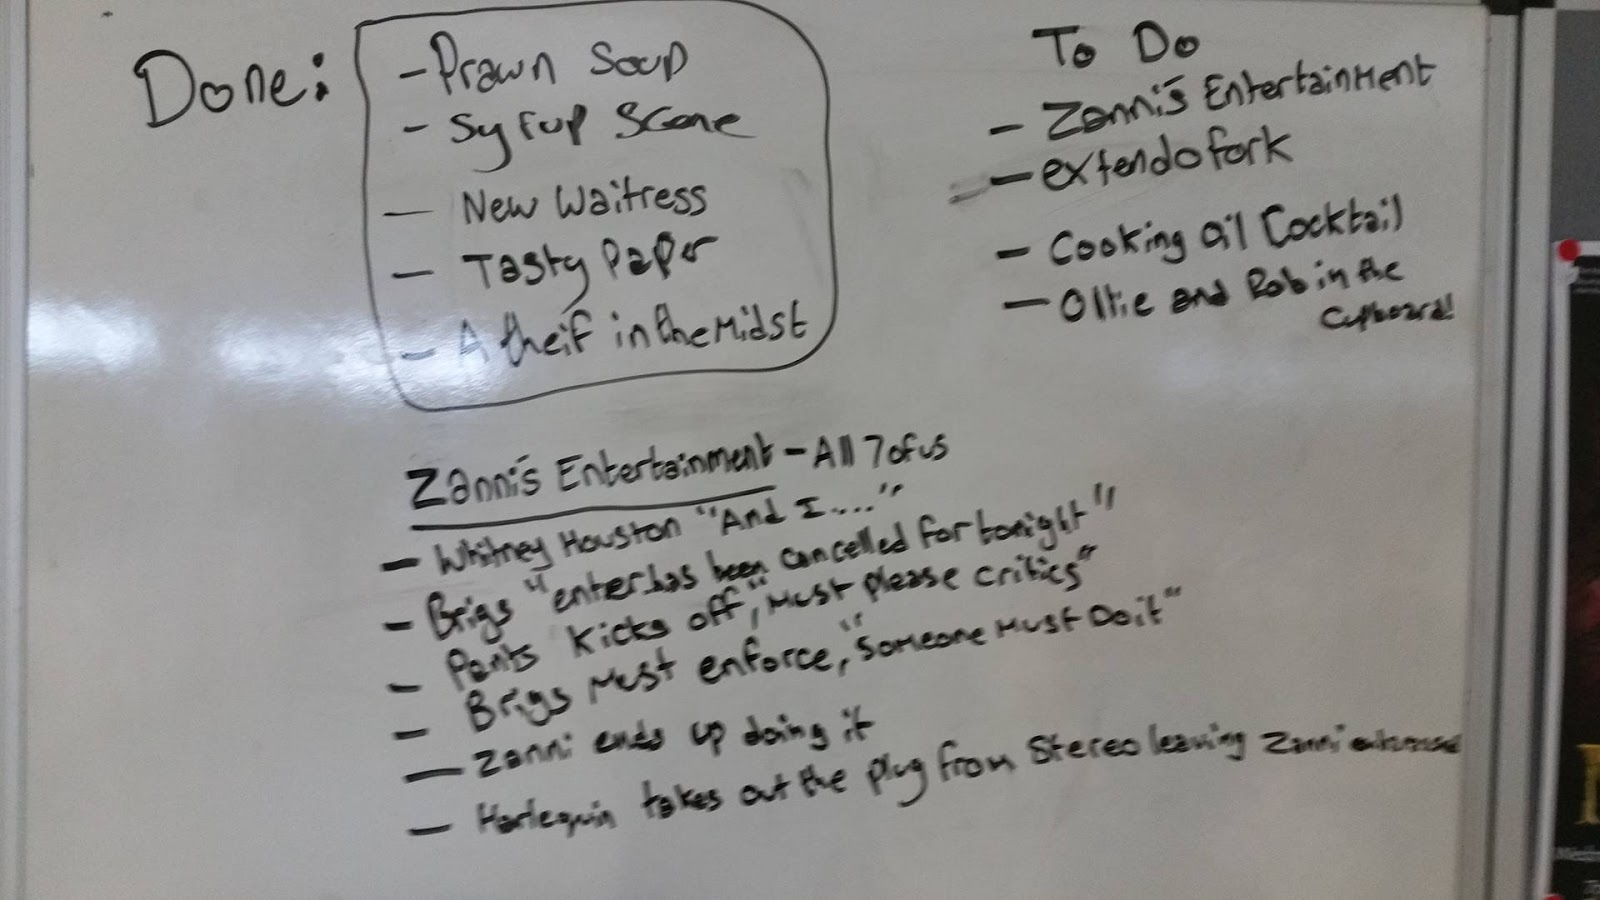 Done:
- Prawn Soup
- Syrup Scene
- New Waitress
- Tasty Paper
- A theif in the Midst
To Do
- Zanni's Entertainment
- extendo fork
- Cooking Oil Cocktail
- Ollie and Rob in the
Cupboard!
Zanni's Entertainment - All 7 of us
- Whitney Houston "And I...."
- Brigs "enter. has been cancelled for tonight"
- Pants kicks off, "Must please critics"
- Brigs Must enforce, "Someone Must Do it"
- Zanni ends up doing it
- Harlequin takes out the plug from Stereo leaving Zanni